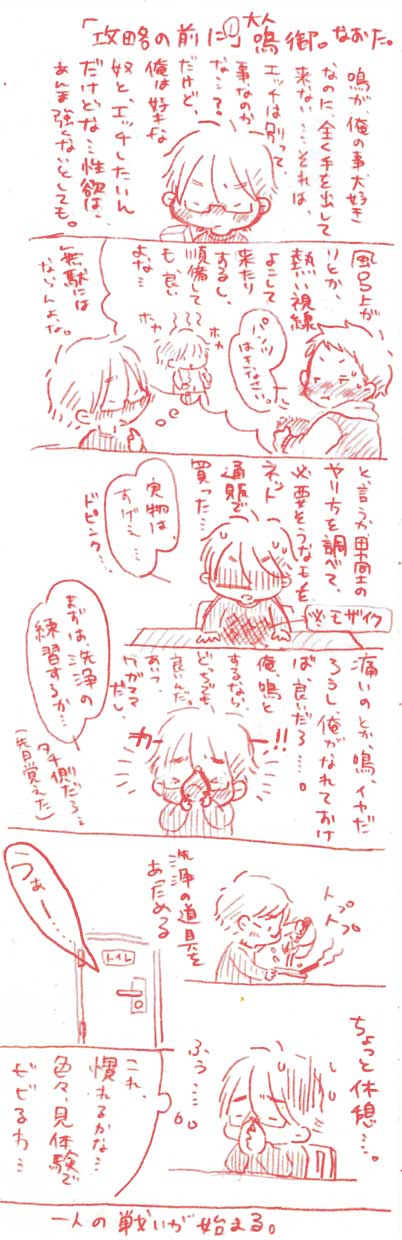 「攻略の前に①」大人鳴御。なおた。
鳴が、俺の事、大好き
なのに、全く手を出して
来ない……それは、
エッチは別って
事なのか
な…？
だけど、
俺は好きな
奴と、エッチしたいん
だけどな…性欲は、
あんま強くないとしても。
風呂上が
りとか、
熱い視線
よこして
来たり
するし、
順備して
も良い
よな…
無駄には
ならんよな。
パンツ
はきなさい。
ホカ
ホカ
と、言うか男同士の
やり方を調べて、
必要そうなモノを
ネット
通販で
買った…
※モザイク
実物は、
すげぇ…
ドピンク…
痛いのとか、鳴、イヤだ
ろうし、俺がなれておけ
ば、良いだろ……。
俺、鳴と
するなら、
どっちでも、
良いんだ。
あいつ、
ワガママ
だし、
カー
ーッ!!
まずは、洗浄の
練習するか…
タチ側だろ…
(皆目覚えた)
洗浄の道具を
あたためる
トプ
トプ
トプ
うあー……
トイレ
ちょっと休憩……。
ふぅ……。
これ、
慣れるかな…
色々、見体験で
ビビるわ…
一人の戦いが始まる。